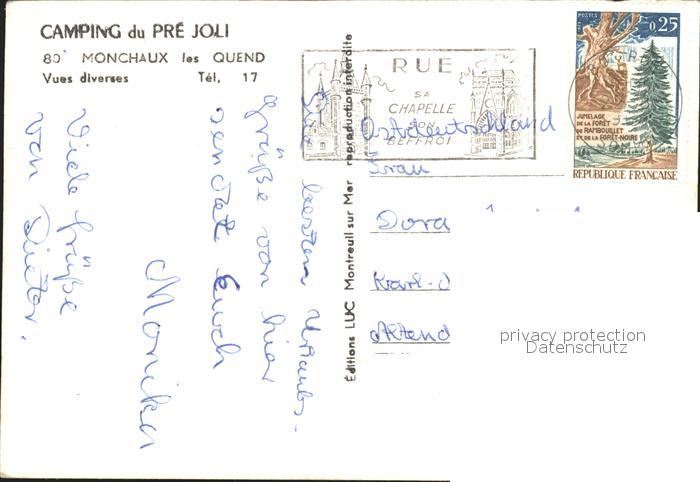 CAMPING du PRÉ JOLI
80 MONCHAUX les QUEND
Vues diverses Tél. 17
Die besten Urlaubs-
grüße von hier
sendet Euch
Monika
Viele Grüße
von Dieter.
Éditions LUC Montreuil sur Mer reproduction interdite
RUE
SA
CHAPELLE
SON
BEFFROI
POSTES
0,25
JUMELAGE
DE LA FORÊT
DE RAMBOUILLET
ET DE LA FORÊT-NOIRE
REPUBLIQUE FRANÇAISE
Ostdeutschland
Frau
Dora
Karl-
Altend
privacy protection
Datenschutz